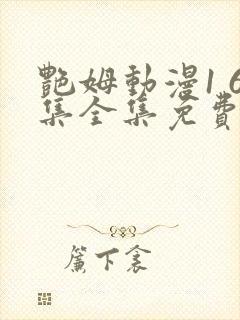 艷姆動漫1 6
集全集免費
簾下衾